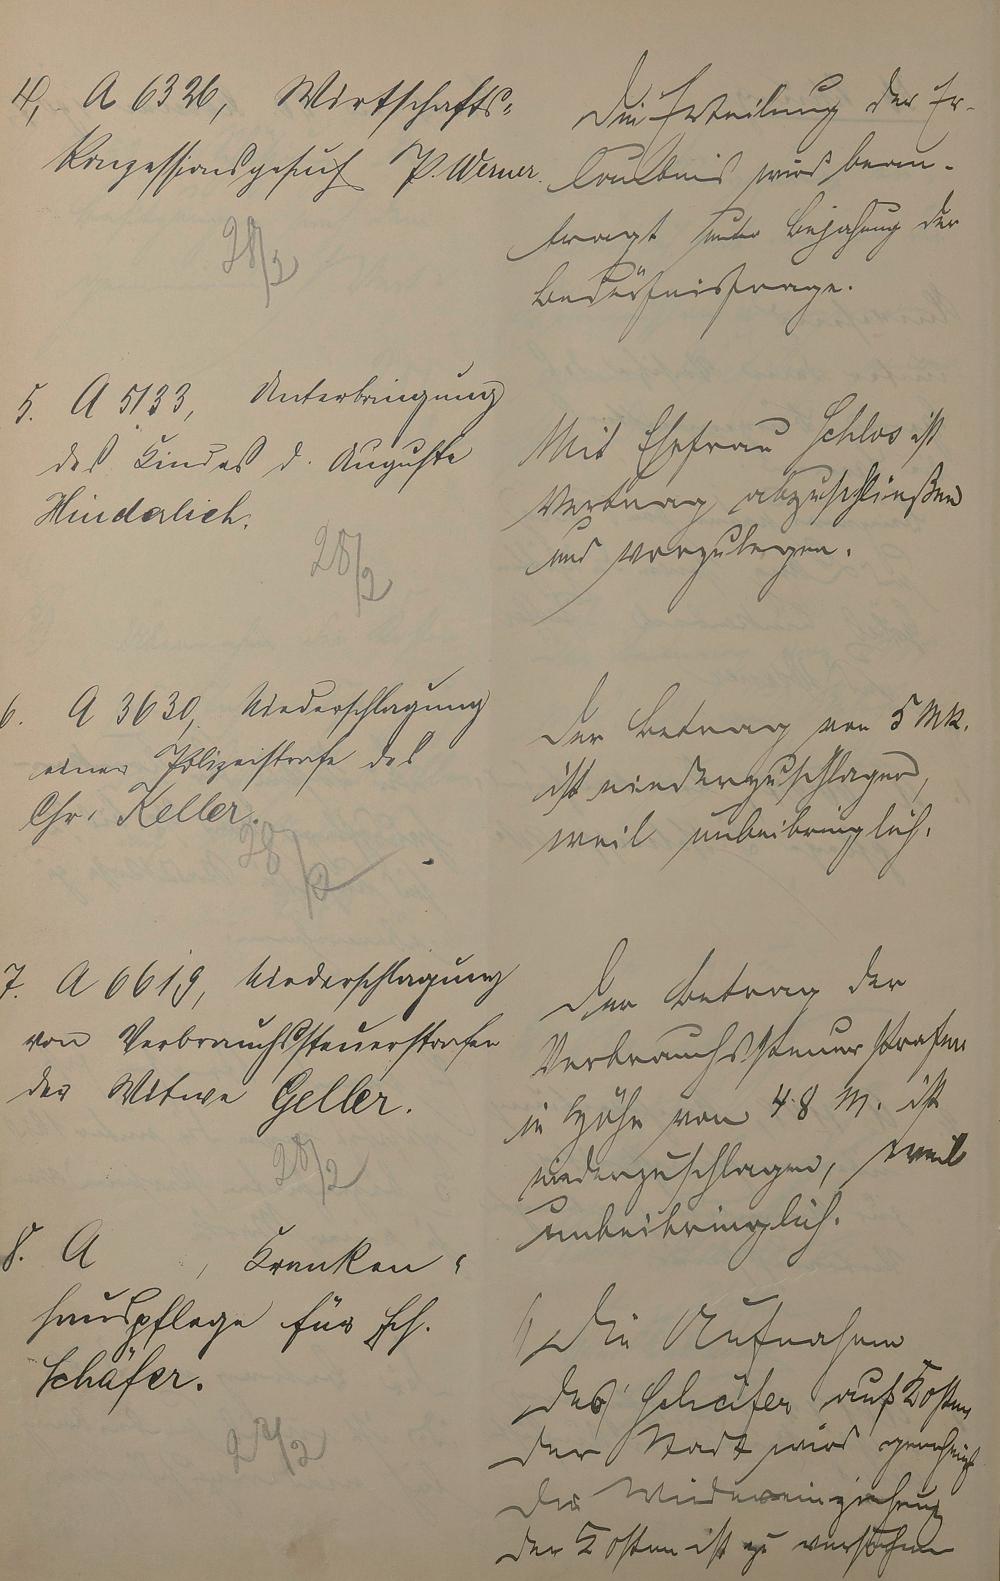 4, A 6326, Wirtschafts-
konzessionsgesuch P. Werner.
28/2
Die Erteilung der Er-
laubnis wird bean-
tragt unter Bejahung der
Bedürfnisfrage.
5. A 5133, Unterbringung
des Kindes d. Auguste
Hinderlich.
28/2
Mit Ehefrau Schlos ist
Vertrag abzuschließen
und vorzulegen.
6. A 3630, Niederschlagung
einer Polizeistrafe des
Chr. Keller.
28/2
Der Betrag von 5 Mk.
ist niederzuschlagen,
weil unbeibringlich.
7. A 6619, Niederschlagung
von Verbrauchssteuerstrafen
der Witwe Geller.
28/2
Der Betrag der
Verbrauchssteuerstrafen
in Höhe von 48 M. ist
niederzuschlagen, weil
unbeibringlich.
8. A , Kranken-
hauspflege für Hch.
Schäfer.
28/2
1) Die Aufnahme
des Schäfer auf Kosten
der Stadt wird genehmigt
Die Wiedereinziehung
der Kosten ist zu versuchen